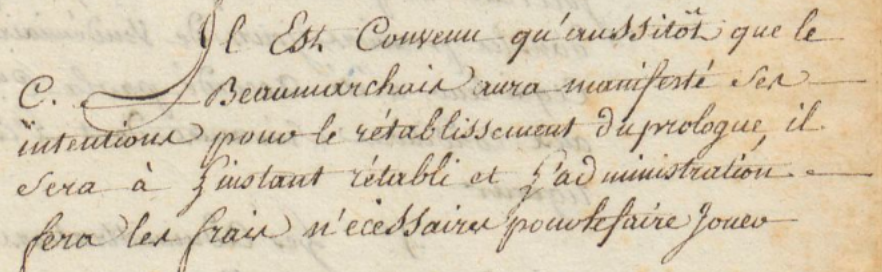 Il Est Convenu qu'aussitôt que le
C. Beaumarchais aura manifesté ses
intentions pour le rétablissement du prologue, il
sera à L'instant rétabli et L'administration
fera les frais n'écéssaires pour le faire Jouer